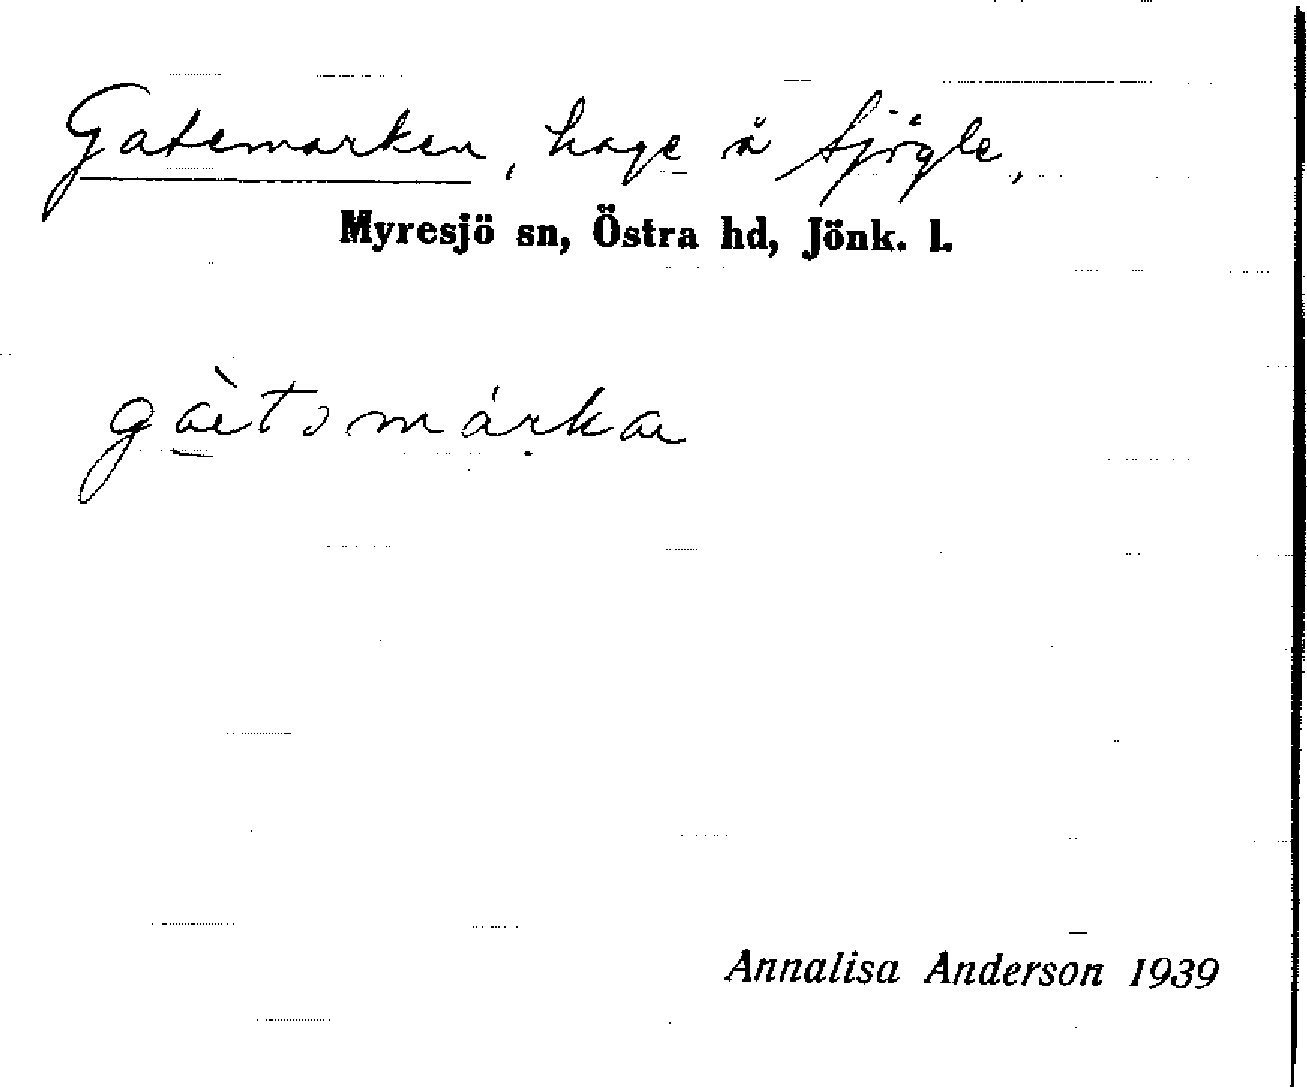 Gatemarken, hage å Sjögle,
Myresjö sn, Östra hd, Jönk. l.
gàetɔmárka
Annalisa Anderson 1939